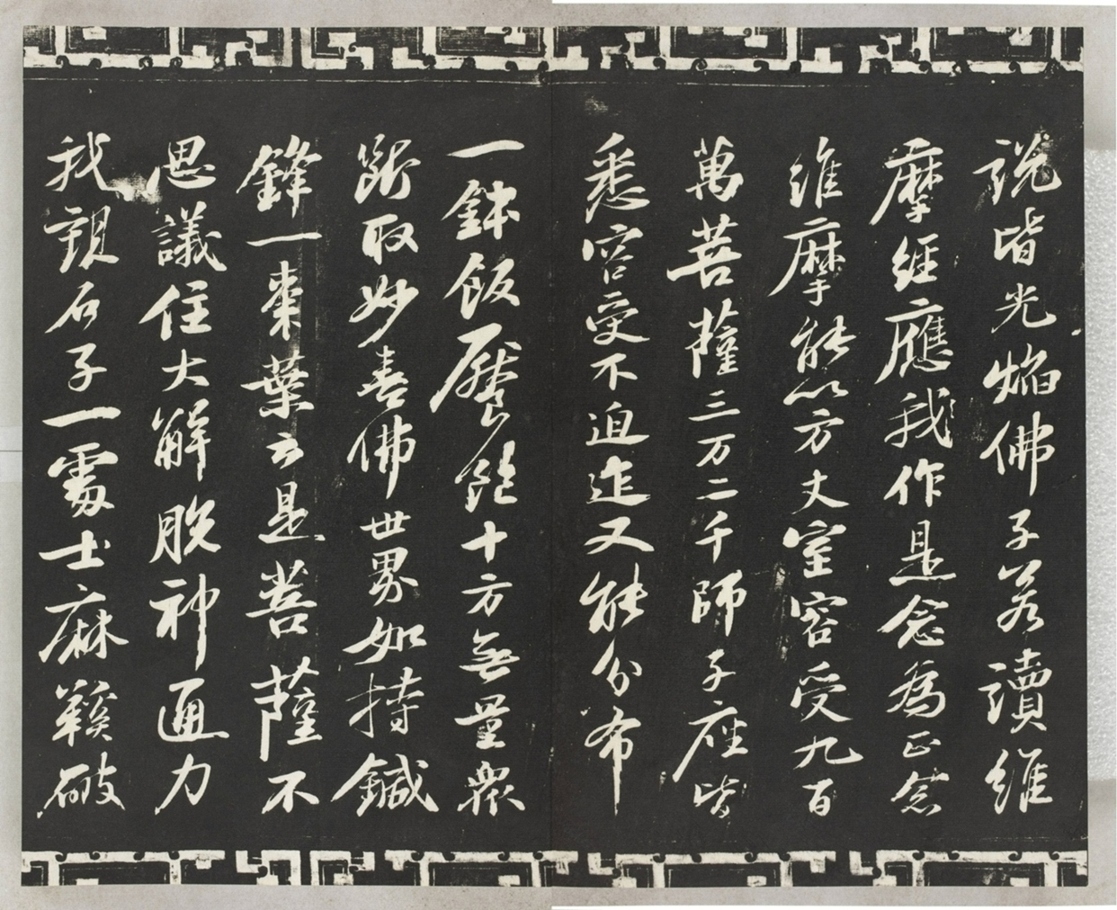 說皆光焰佛子若讀維
摩經應我作是念為正念
維摩能以方丈室容受九百
萬菩薩三万二千師子座皆
悉容受不迫迮又能分布
一鉢飯饜飽十方無量眾
斷取妙喜佛世界如持鍼
鋒一棗葉云是菩薩不
思議住大解脫神通力
我觀石子一處士麻鞵破